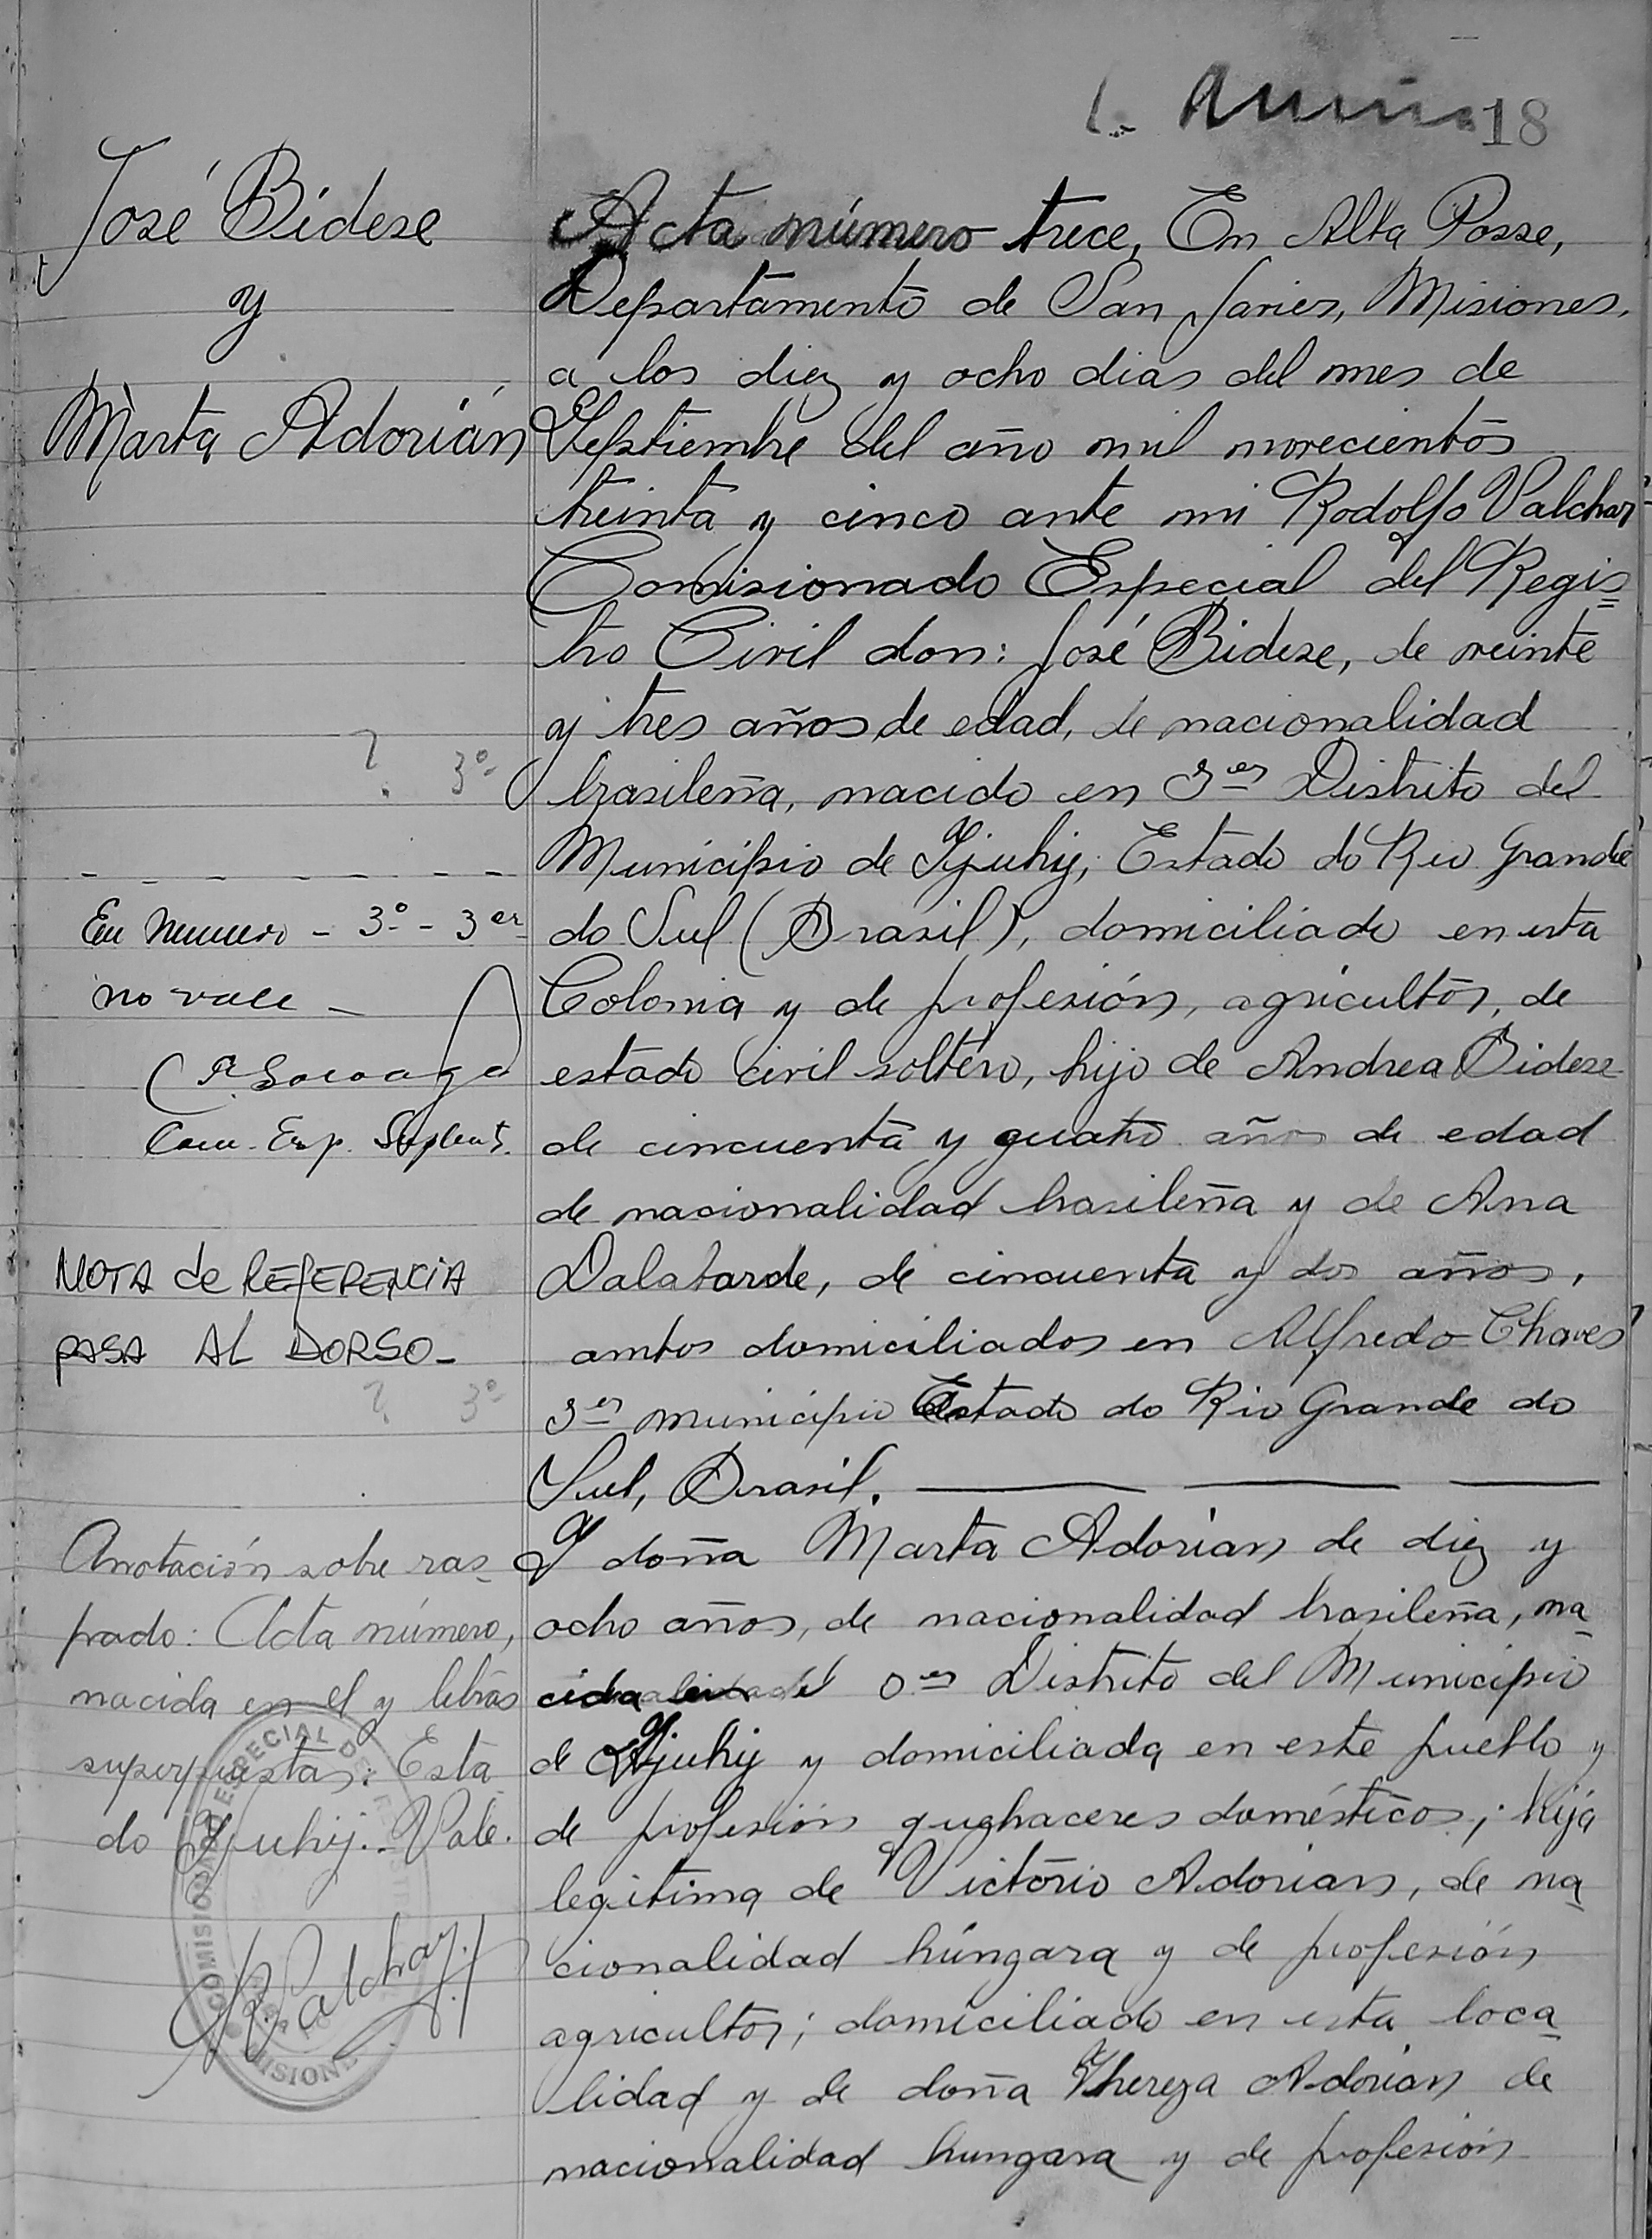 18
José Bidese
y
Marta Adorián
? 3º
En numero - 3º - 3er
no vale -
Com. Esp. Suplent.
NOTA de REFERENCIA
PASA AL DORSO -
? 3º
Anotación sobre ras-
pado: Acta número,
nacida en el y letras
superpuestas: Esta
do Yjuhy. - Vale.
R Valchar
COMISIONADO ESPECIAL DEL REGISTRO
MISIONES
Acta número trece, En Alba Posse,
Departamento de San Javier, Misiones,
a los diez y ocho dias del mes de
Septiembre del año mil novecientos
treinta y cinco ante mi Rodolfo Valchar
Comisionado Especial del Regis=
tro Civil don: José Bidese, de veinte
y tres años de edad, de nacionalidad
brasileña, nacido en 3er Distrito del
Municipio de Yjuhy, Estado do Rio Grande
do Sul (Brasil), domiciliado en esta
Colonia y de profesión, agricultor, de
estado civil soltero, hijo de Andrea Bidese
de cincuenta y cuatro años de edad
de nacionalidad brasileña y de Ana
de cincuenta y dos años,
ambos domiciliados en Alfredo Chaves
3er municipio Estado do Rio Grande do
Sul, Brasil.
Y doña Marta Adorian de diez y
ocho años, de nacionalidad brasileña, na
cida Distrito del Municipio
de Yjuhy y domiciliada en este pueblo y
de profesión quehaceres domésticos; hija
legitima de Victorio Adorian, de na
cionalidad húngara y de profesión
agricultor; domiciliado en esta loca
lidad y de doña Thereza Adorian de
nacionalidad hungara y de profesión